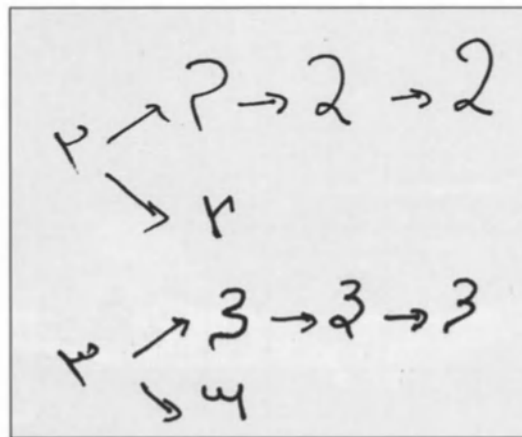 ٢ → ? → 2 → 2
→ ٢
٣ → 3 → 3 → 3
→ ٣